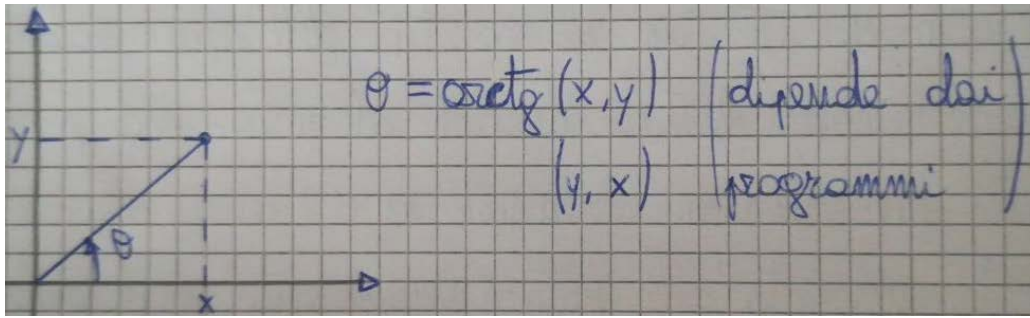 θ = arctg (x, y) (dipende dai
(y, x) programmi)
y
θ
x